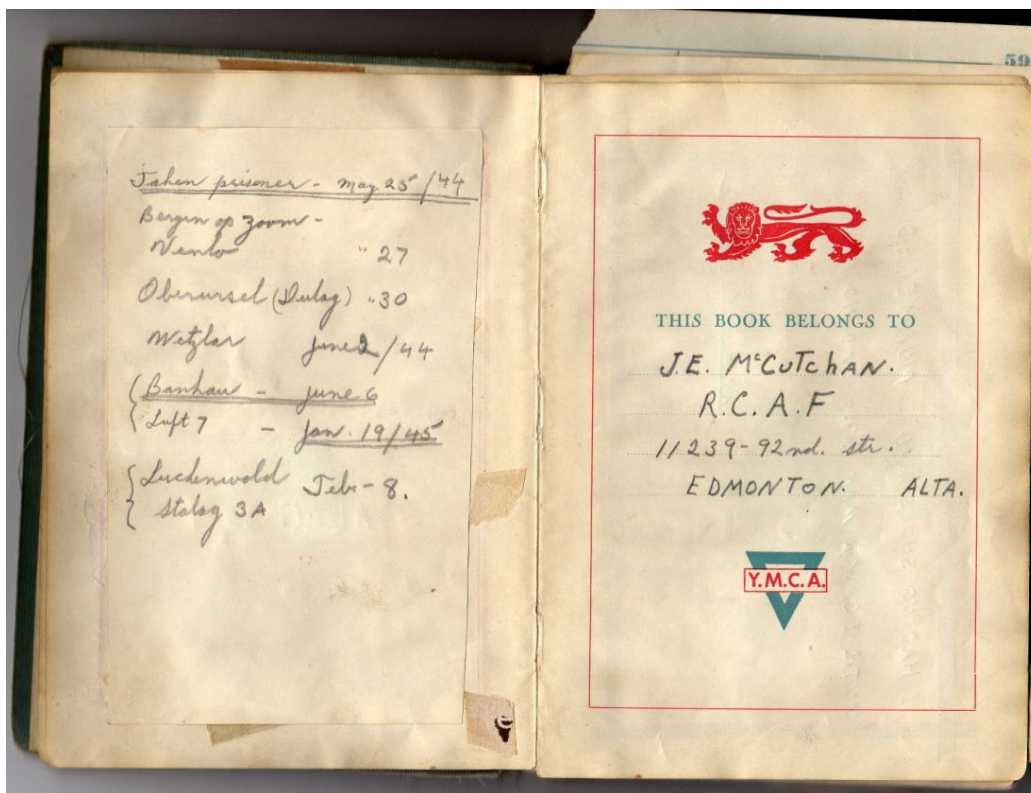 Taken prisoner - May 25/44
Bergen op zoom -
Venlo " 27
Oberursel (Dulag) " 30
Wetzlar June 2/44
Bankau - June 6
Luft 7 - Jan. 19/45
Luckenwold Feb - 8.
Stalag 3A
59
THIS BOOK BELONGS TO
J.E. McCutchan.
R.C.A.F
11239-92nd. str.
EDMONTON. ALTA.
Y.M.C.A.